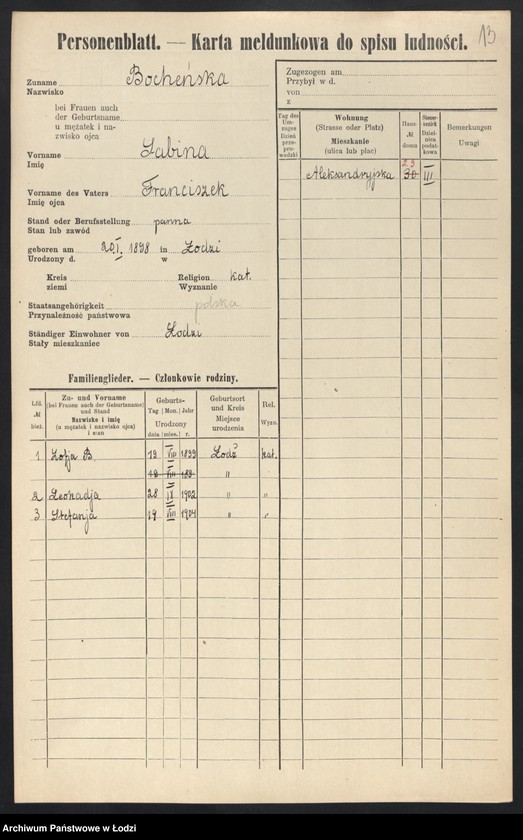 13
Personenblatt. — Karta meldunkowa do spisu ludności.
Zuname Bocheńska
Nazwisko
bei Frauen auch
der Geburtsname
u mężatek i na-
zwisko ojca
Vorname Sabina
Imię
Vorname des Vaters Franciszek
Imię ojca
Stand oder Berufsstellung panna
Stan lub zawód
geboren am 20 I. 1898 in Łodzi
Urodzony d. w
Kreis Religion kat.
ziemi Wyznanie
Staatsangehörigkeit polska
Przynależność państwowa
Ständiger Einwohner von Łodzi
Stały mieszkaniec
Zugezogen am
Przybył w d.
von
z
Tag des Um-zuges Dzień prze-pro-wadzki
Wohnung
(Strasse oder Platz)
Mieszkanie
(ulica lub plac)
Haus-
№
domu
Steuer-bezirk Dziel-nica podat-kowa
Bemerkungen
Uwagi
23
Aleksandryjska 30 III
Familienglieder. — Członkowie rodziny.
Lfd.
№
bież.
Zu- und Vorname
(bei Frauen auch der Geburtsname)
und Stand
Nazwisko i imię
(u mężatek i nazwisko ojca)
i stan
Geburts-
Tag Mon. Jahr
Urodzony
dnia mies. r.
Geburtsort
und Kreis
Miejsce
urodzenia
Rel.
Wyzn.
1 Zofja B. 19 VIII 1899 Łodź kat.
18 VIII 189 "
2 Leokadja 28 IX 1902 " "
3 Stefanja 19 VIII 1904 " "
Archiwum Państwowe w Łodzi